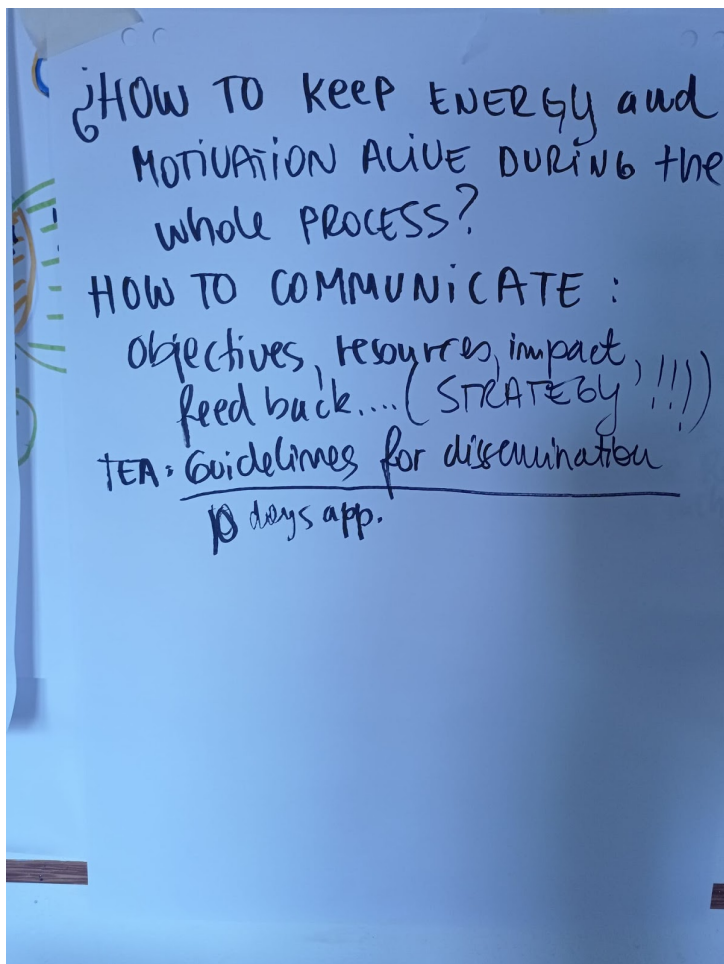 ¿HOW TO KEEP ENERGY and
MOTIVATION ALIVE DURING the
whole PROCESS?
HOW TO COMMUNICATE:
Objectives, resources, impact,
feed back.... (STRATEGY !!!)
TEA: Guidelines for dissemination
10 days app.